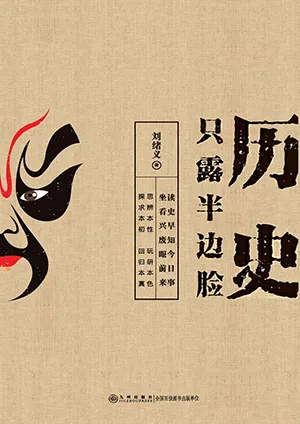 历史
只露半边脸
刘绪义 著
读史早知今日事
坐看兴废眼前来
思辨本性 玩研本色
探求本初 回归本真
九州出版社
JIUZHOUPRESS
全国百佳图书出版单位